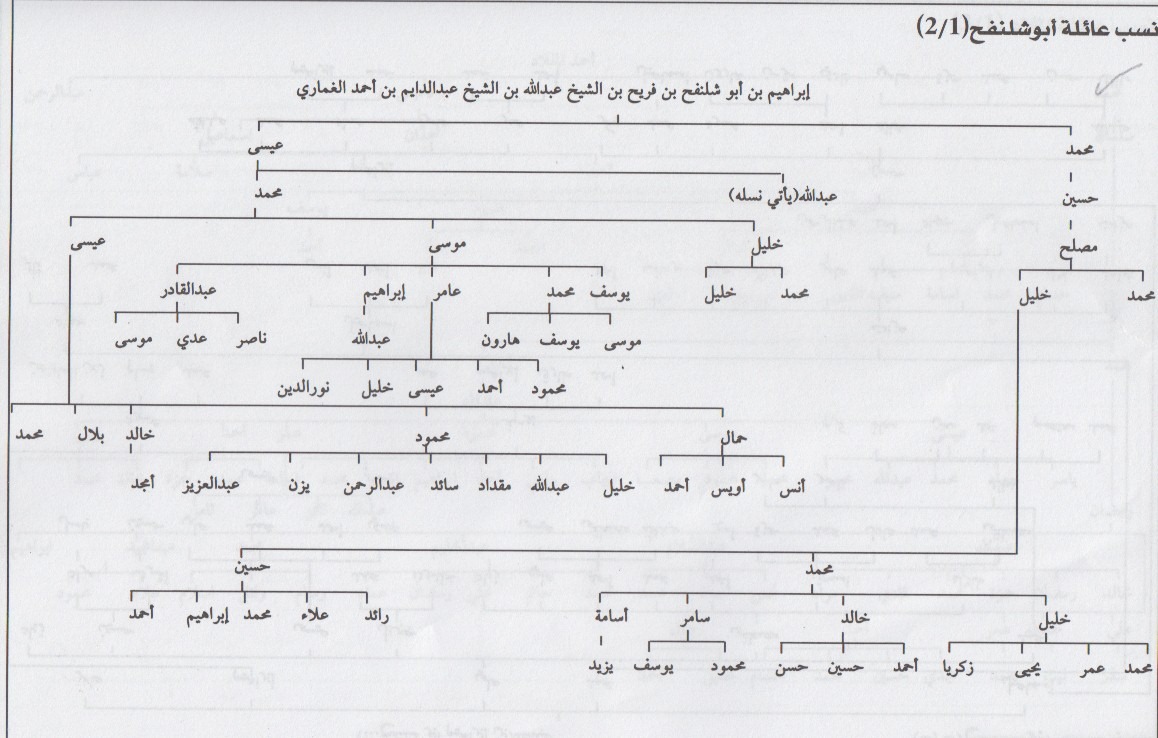 نسب عائلة أبوشلنفح(2/1)
إبراهيم بن أبو شلنفح بن فريح بن الشيخ عبدالله بن الشيخ عبدالدايم بن أحمد الغماري
محمد عيسى
حسين عبدالله(يأتي نسله) محمد
مصلح خليل موسى عيسى
محمد خليل محمد خليل يوسف محمد عامر إبراهيم عبدالقادر
موسى يوسف هارون عبدالله ناصر عدي موسى
محمود أحمد عيسى خليل نورالدين
جمال محمود خالد بلال محمد
أنس أويس أحمد خليل عبدالله مقداد سائد عبدالرحمن يزن عبدالعزيز أمجد
محمد حسين
خليل خالد سامر أسامة رائد علاء محمد إبراهيم أحمد
محمد عمر يحيى زكريا أحمد حسين حسن محمود يوسف يزيد